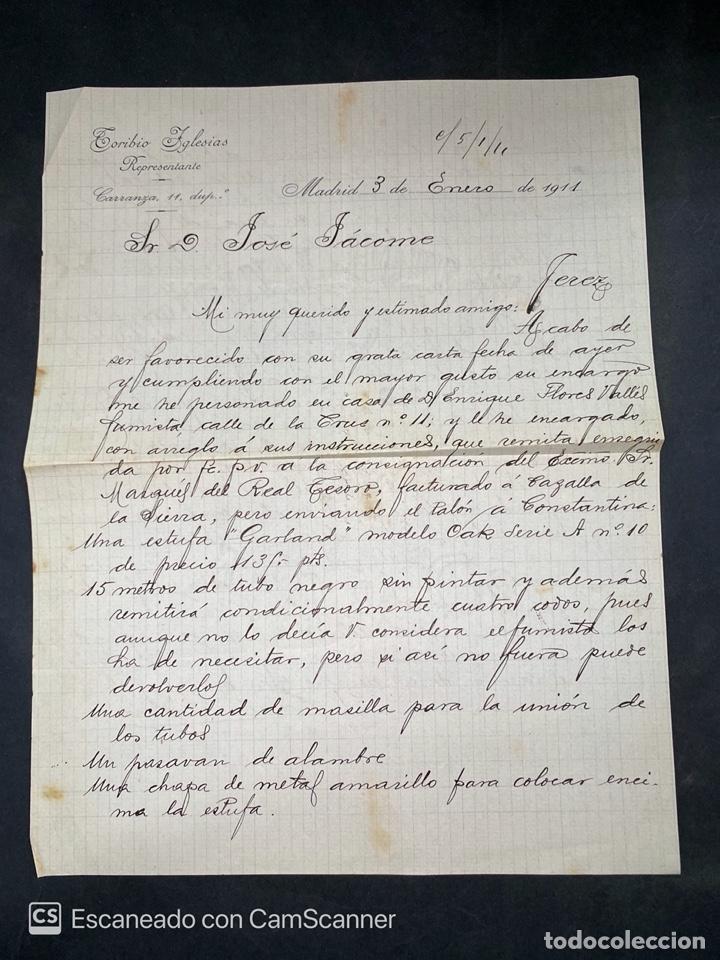 Toribio Iglesias
Representante
Carranza, 11, dup.º
c/ 5/1/11
Madrid 3 de Enero de 1911
Sr. D. José Jácome
Jerez
Mi muy querido y estimado amigo:
Acabo de
ser favorecido con su grata carta fecha de ayer
y cumpliendo con el mayor gusto su encargo
me he personado en casa de D. Enrique Flores Vallés
fumista, calle de la Cruz nº 11; y le he encargado,
con arreglo á sus instrucciones, que remita ensegui
da por fc. pv. a la consignación del Excmo. Sr.
Marqués del Real Tesoro, facturado á Cazalla de
la Sierra, pero enviando el talón á Constantina:
Una estufa "Garland" modelo Oak Serie A nº 10
de precio pts.
15 metros de tubo negro sin pintar y además
remitirá condicionalmente cuatro codos, pues
aunque no lo decía V. considera el fumista los
ha de necesitar, pero si así no fuera puede
devolverlos
Una cantidad de masilla para la unión de
los tubos
Un pasavan de alambre
Una chapa de metal amarillo para colocar enci-
ma la estufa.
CS Escaneado con CamScanner
todocoleccion